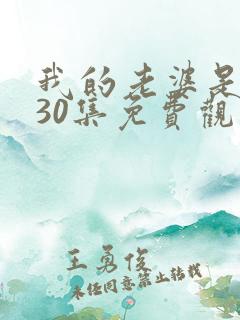 我的老婆是
30集免費觀
王勇俊
未经同意禁止转载